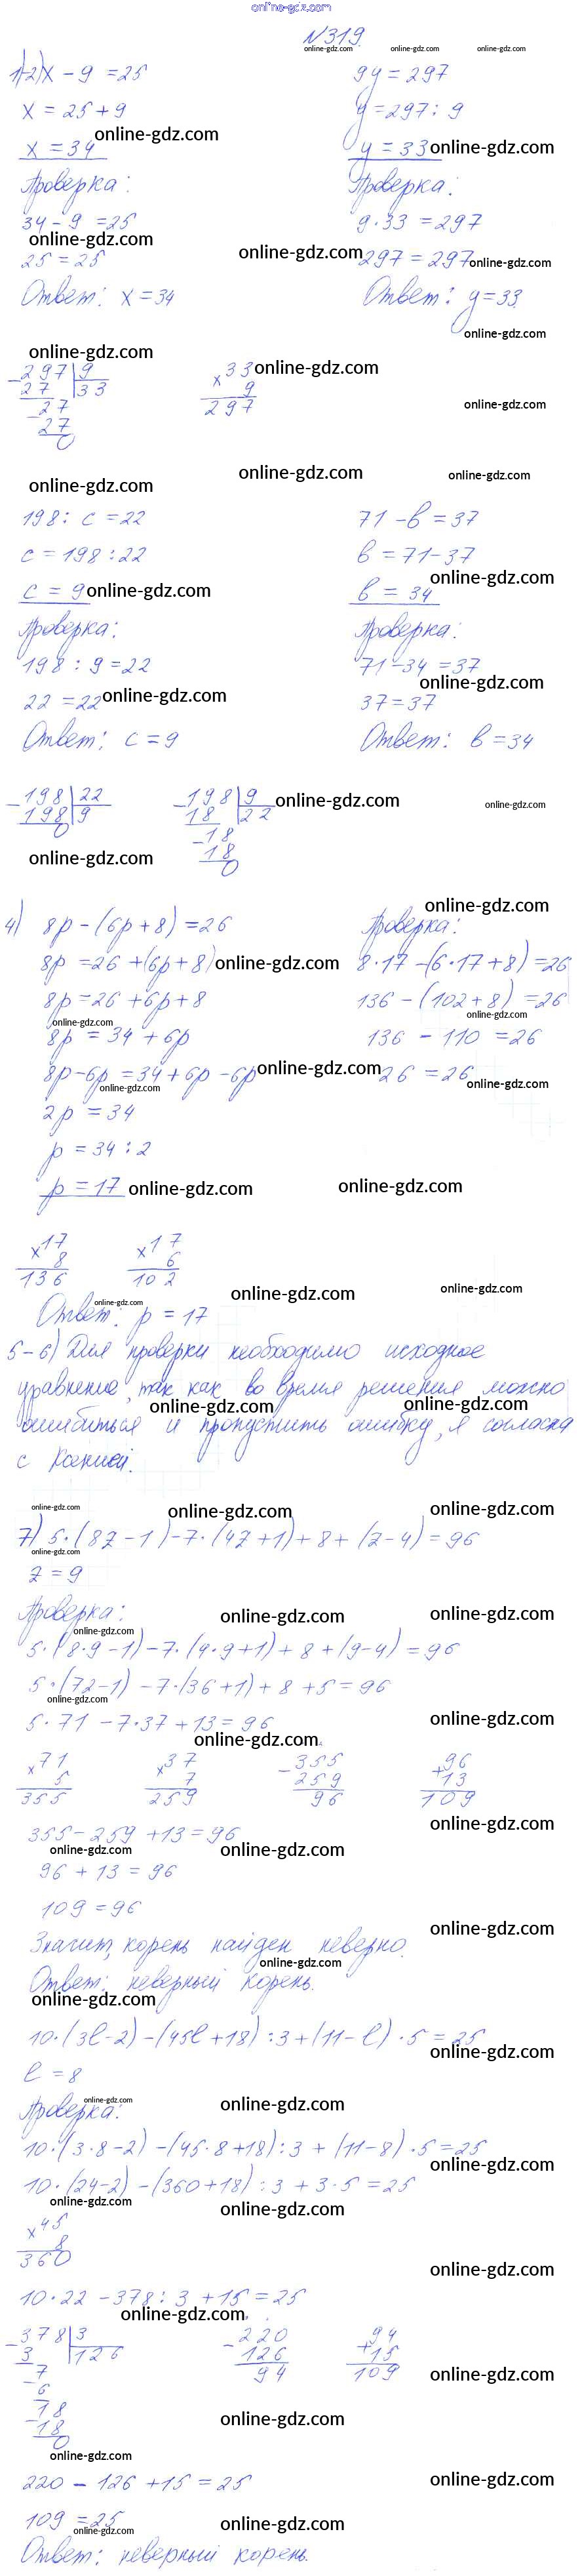 online-gdz.com
№319
1)-2) x - 9 = 25
x = 25 + 9
x = 34
Проверка:
34 - 9 = 25
25 = 25
Ответ: x = 34
9y = 297
y = 297 : 9
y = 33
Проверка:
9 · 33 = 297
297 = 297
Ответ: y = 33.
- 297 | 9
27 | 33
- 27
27
0
x 33
9
297
198 : c = 22
c = 198 : 22
c = 9
Проверка:
198 : 9 = 22
22 = 22
Ответ: c = 9
71 - b = 37
b = 71 - 37
b = 34
Проверка:
71 - 34 = 37
37 = 37
Ответ: b = 34
- 198 | 22
198 | 9
0
- 198 | 9
18 | 22
- 18
18
0
4) 8p - (6p + 8) = 26
8p = 26 + (6p + 8)
8p = 26 + 6p + 8
8p = 34 + 6p
8p - 6p = 34 + 6p - 6p
2p = 34
p = 34 : 2
p = 17
Проверка:
8 · 17 - (6 · 17 + 8) = 26
136 - (102 + 8) = 26
136 - 110 = 26
26 = 26
x 17
8
136
x 17
6
102
Ответ: p = 17
5-6) Для проверки необходимо исходное
уравнение, так как во время решения можно
ошибиться и пропустить ошибку, я согласна
с Ксенией.
7) 5 · (8z - 1) - 7 · (4z + 1) + 8 + (z - 4) = 96
z = 9
Проверка:
5 · (8 · 9 - 1) - 7 · (4 · 9 + 1) + 8 + (9 - 4) = 96
5 · (72 - 1) - 7 · (36 + 1) + 8 + 5 = 96
5 · 71 - 7 · 37 + 13 = 96
x 71
5
355
x 37
7
259
- 355
259
96
+ 96
13
109
355 - 259 + 13 = 96
96 + 13 = 96
109 = 96
Значит, корень найден неверно.
Ответ: неверный корень.
10 · (3l - 2) - (45l + 18) : 3 + (11 - l) · 5 = 25
l = 8
Проверка:
10 · (3 · 8 - 2) - (45 · 8 + 18) : 3 + (11 - 8) · 5 = 25
10 · (24 - 2) - (360 + 18) : 3 + 3 · 5 = 25
x 45
8
360
10 · 22 - 378 : 3 + 15 = 25
- 378 | 3
3 | 126
- 7
6
- 18
18
0
- 220
126
94
+ 94
15
109
220 - 126 + 15 = 25
109 = 25
Ответ: неверный корень.